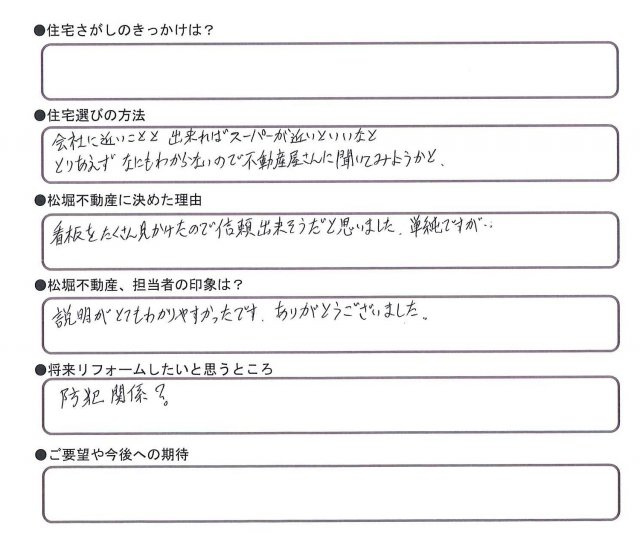 ●住宅さがしのきっかけは？
●住宅選びの方法
会社に近いことと 出来ればスーパーが近いといいなと
とりあえず なにもわからないので不動産屋さんに聞いてみようかと、
●松堀不動産に決めた理由
看板をたくさん見かけたので信頼出来そうだと思いました。単純ですが‥
●松堀不動産、担当者の印象は？
説明がとてもわかりやすかったです。ありがとうございました。
●将来リフォームしたいと思うところ
防犯関係？。
●ご要望や今後への期待